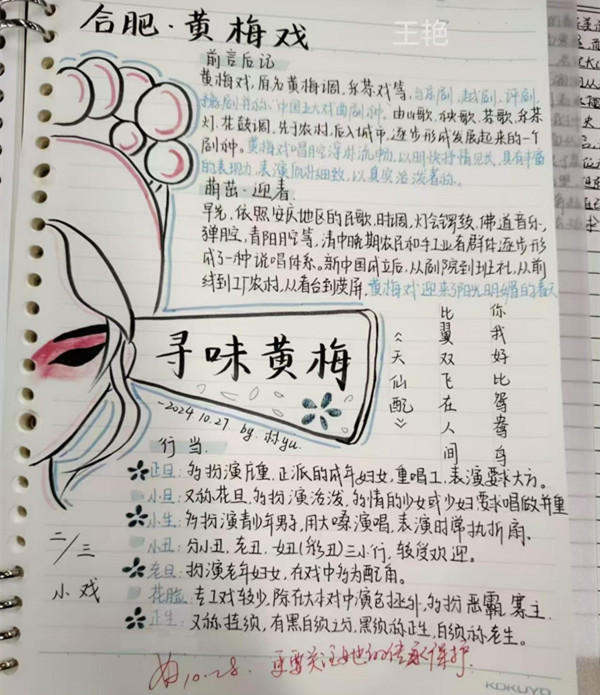 合肥·黄梅戏
王艳
前言后记
黄梅戏,原名黄梅调,采茶戏等,与京剧,越剧,评剧,
豫剧并称"中国五大戏曲剧种。由山歌,秧歌,茶歌,采茶
灯,花鼓调,先于农村,后入城市,逐步形成发展起来的一个
剧种。黄梅戏唱腔淳朴流畅,以明快抒情见长,具有丰富
的表现力,表演质朴细致,以真实活泼著称。
萌芽·迎春
早先,依照安庆地区的民歌,时调,灯会锣鼓,佛道音乐,
弹腔,青阳腔等,清中晚期农民和手工业者群体逐步形
成了一种说唱体系。新中国成立后,从剧院到班社,从前
线到工厂农村,从看台到荧屏,黄梅戏迎来了阳光明媚的春天
你我好比鸳鸯鸟
比翼双飞在人间
《天仙配》
寻味黄梅
-2024.10.27 by.
行当.
正旦:多扮演庄重,正派的成年妇女,重唱工,表演要求大方。
小旦:又称花旦,多扮演活泼,多情的少女或少妇要求唱做并重
小生:多扮演青少年男子,用大嗓演唱,表演时常执折扇.
小丑:分小丑,老丑,女丑(彩丑)三小行,较受欢迎。
老旦:扮演老年妇女,在戏中多为配角。
花脸:专工戏较少,除在大本戏中演包拯外,多扮恶霸寨主.
正生:又称挂须,有黑白须之分,黑须称正生,白须称老生。
二/三
小戏
10.28. 更要关注她的传承保护.
KOKUYO